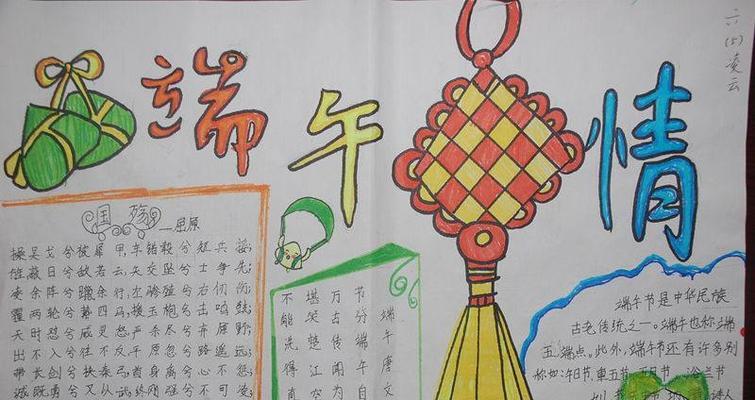 端午情
六(5)凌云
国殇
—屈原
操吴戈兮被犀甲,车错毂兮短兵接;
旌蔽日兮敌若云,矢交坠兮士争先;
凌余阵兮躐余行,左骖殪兮右刃伤;
霾两轮兮絷四马,援玉枹兮击鸣鼓;
天时怼兮威灵怒,严杀尽兮弃原野;
出不入兮往不反,平原忽兮路遥远;
带长剑兮挟秦弓,首身离兮心不惩;
诚既勇兮又以武,终刚强兮不可凌
端午唐文
节分端午自
万古传闻为
堪笑楚江空
不能洗得直
端午节是中华民族
古老传统之一。端午也称端
五,端点。此外,端午节还有许多别
称如:午日节、重五节、五月节、浴兰节